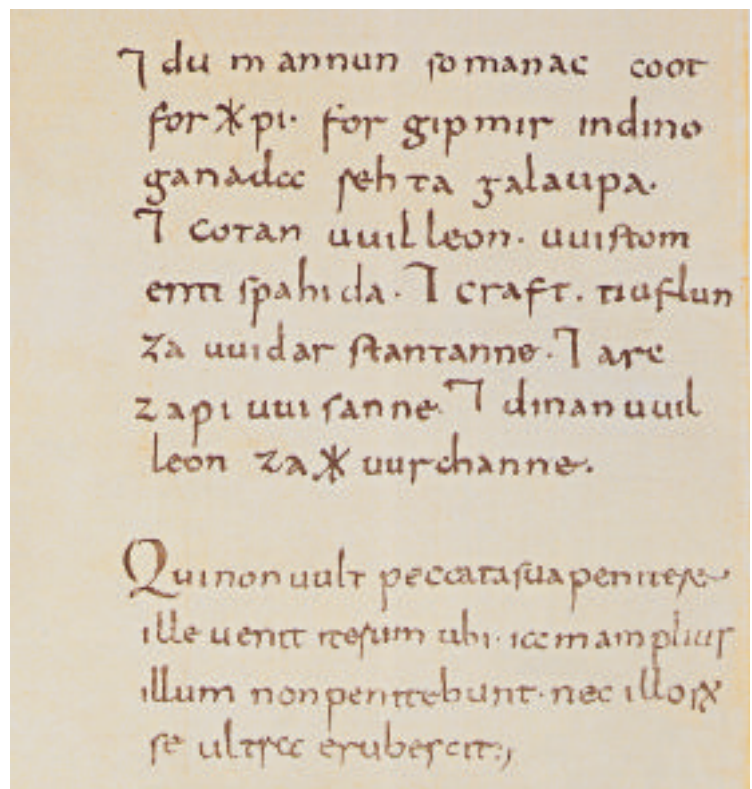 ⁊ du mannun so manac coot
for ᚷpi· for gip mir in dino
ganada rehta galaupa·
⁊ cotan uuilleon· uuistom
enti spahida· ⁊ craft· tiuflun
za uuidar stantanne· ⁊ arc
za pi uuisanne· ⁊ dinan uuil
leon za ᚷuurchanne·
Qui non uult peccata sua penitere
ille uenit iterum ubi· iam amplius
illum non penitebunt· nec illoꝝ
se ultra erubescit·,